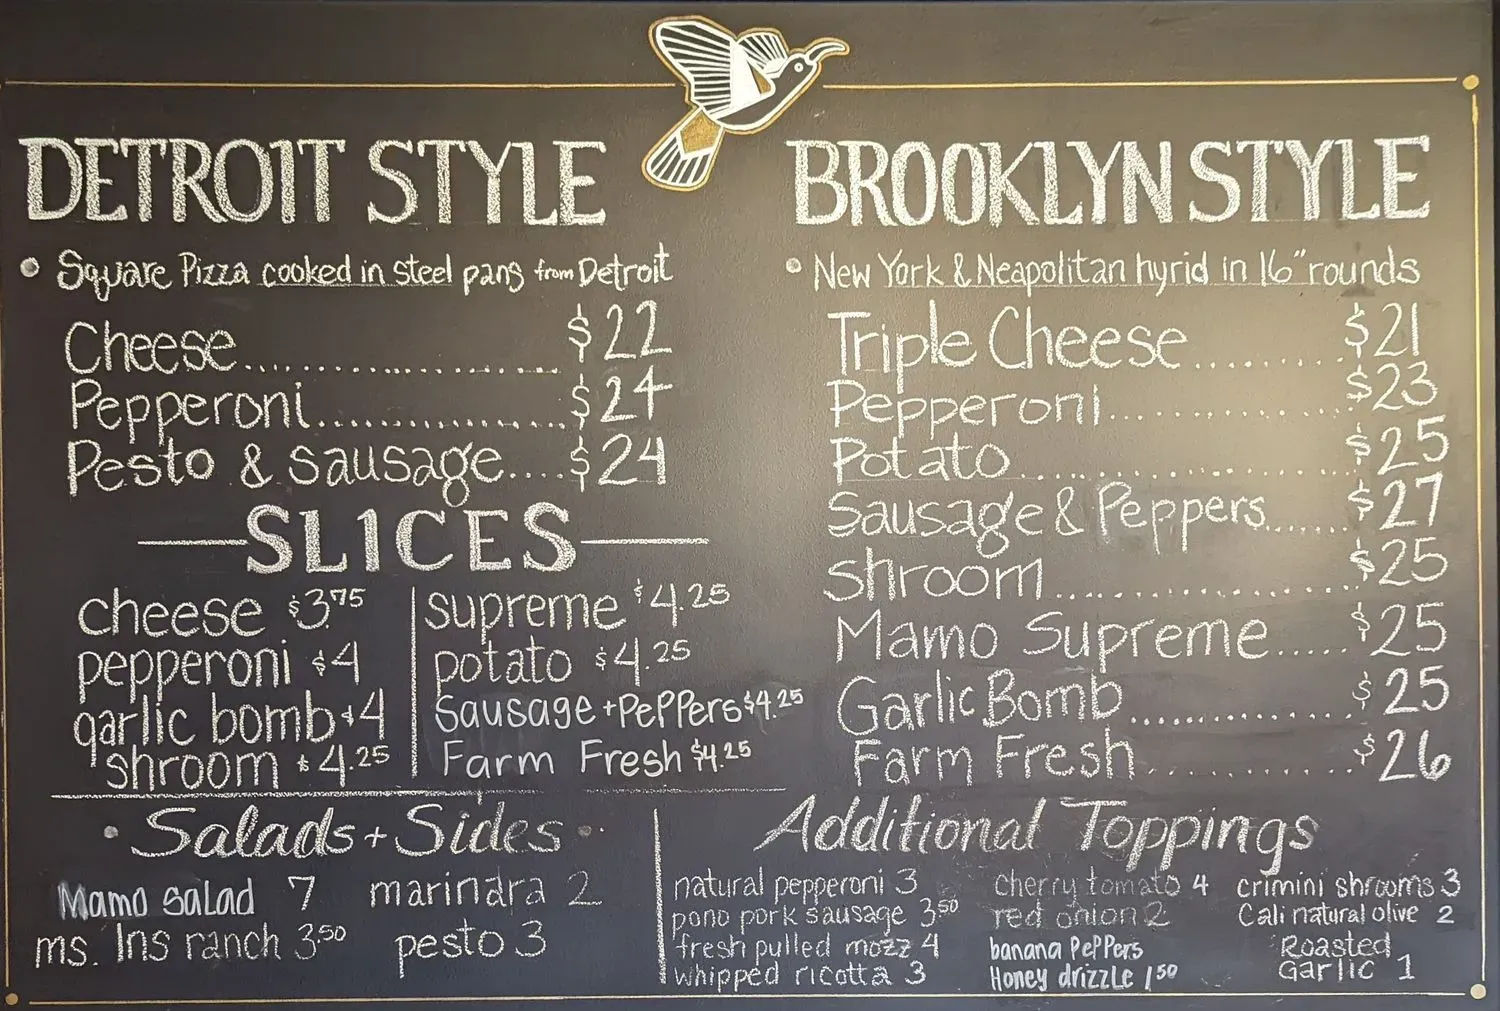 DETROIT STYLE
• Square Pizza cooked in steel pans from Detroit
Cheese.................... $22
Pepperoni................ $24
Pesto & sausage.... $24
SLICES
cheese $3.75
pepperoni $4
garlic bomb $4
shroom $4.25
supreme $4.25
potato $4.25
Sausage + PePPers $4.25
Farm Fresh $4.25
BROOKLYN STYLE
• New York & Neapolitan hyrid in 16" rounds
Triple Cheese......... $21
Pepperoni.............. $23
Potato.................. $25
Sausage & Peppers...... $27
Shroom.................. $25
Mamo Supreme..... $25
Garlic Bomb............... $25
Farm Fresh............. $26
• Salads + Sides •
Mamo salad 7
ms. Ins ranch 3.50
marindra 2
pesto 3
Additional Toppings
natural pepperoni 3
pono pork sausage 3.50
fresh pulled mozz 4
whipped ricotta 3
Cherry tomato 4
red onion 2
banana PePPers
Honey drizzle 1.50
crimini shrooms 3
Cali natural olive 2
Roasted
Garlic 1